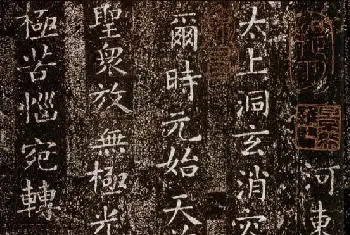 河東
太上洞玄消災
爾時元始天尊
聖衆放無極光
極苦惱宛轉